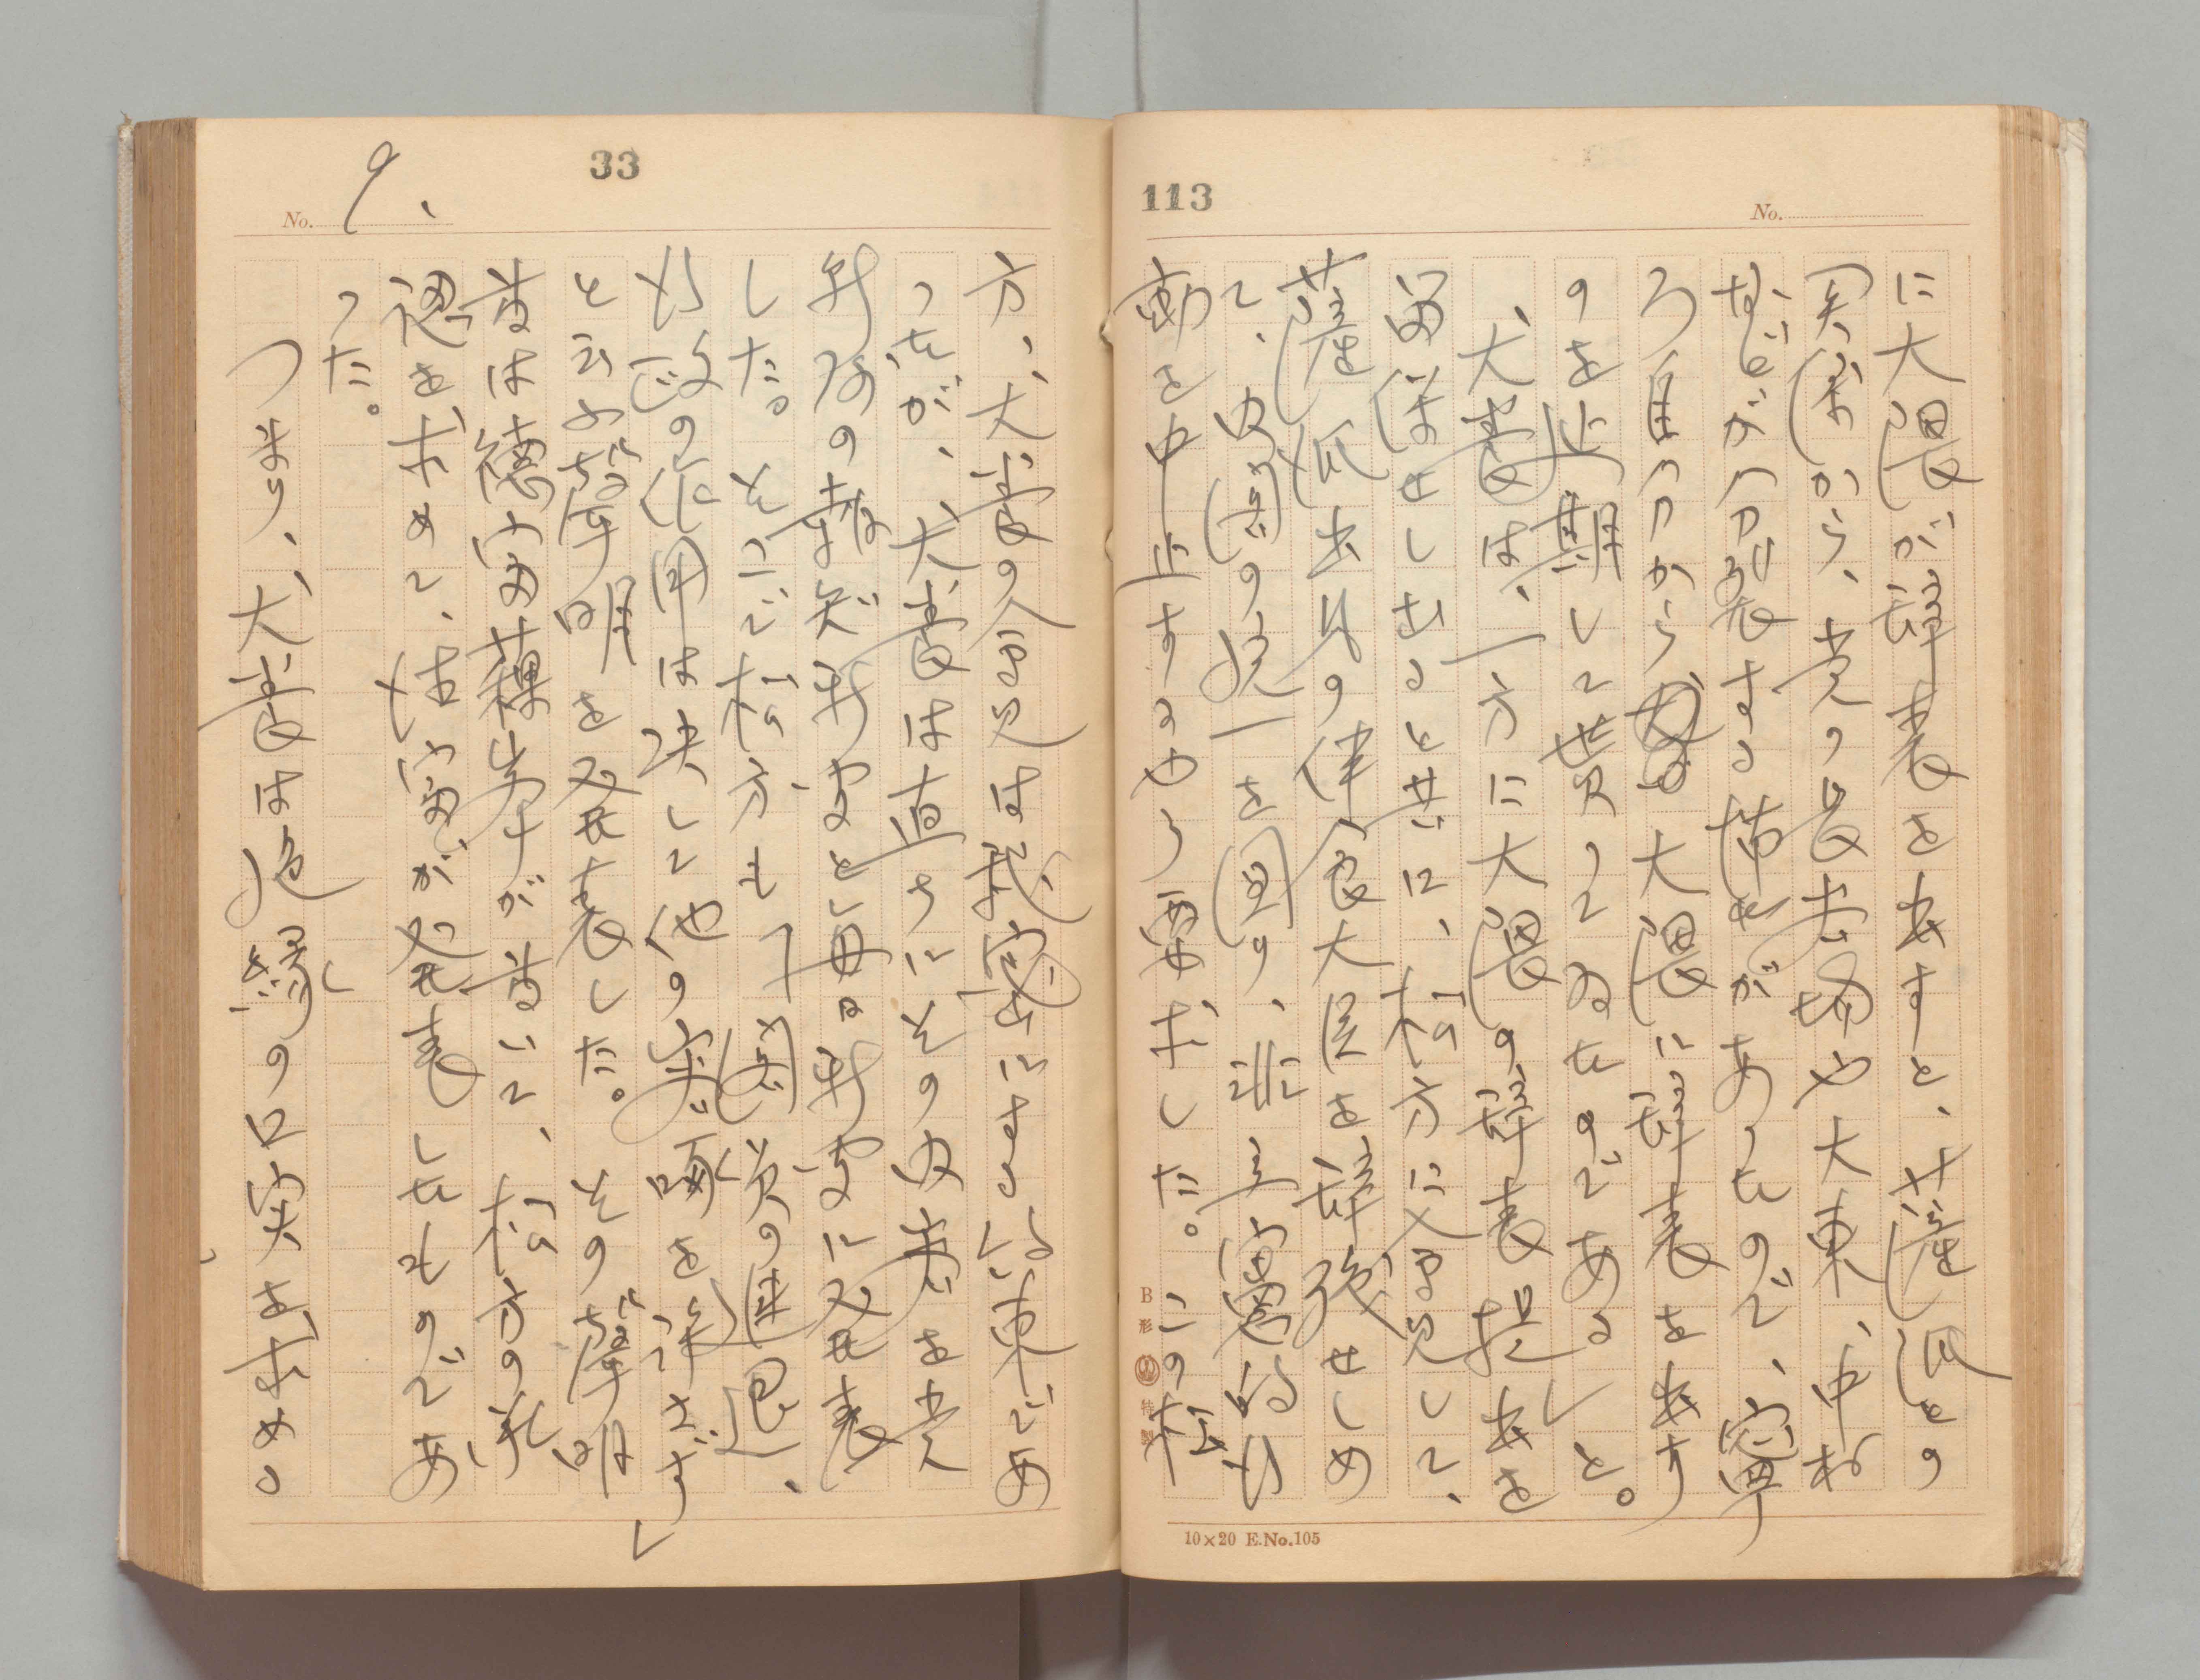 113
No.
に大隈が辞表を出すと、薩派との
関係から、党の長老株や大東、中村
などが分裂する惧れがあつたので、寧
ろ自分から大隈に辞表を出す
のを延期して貰つてゐたのである」と。
犬養は、一方に大隈の辞表提出を
留保せしめると共に、松方に会見して、
薩派出身の全大臣を辞職せしめ
て、内閣の統一を図り、非立憲的行
動を中止するやう要求した。この松
B形 特製
10×20 E.No.105
33
No. 9.
方、犬養の会見は秘密にする約束であ
つたが、犬養は直ちにその内容を党
報局の報知新聞と毎日新聞に発表
した。そこで松方も「閣員の進退、
行政の作用は決して他の容喙を許さず」
と云ふ声明を発表した。その声明
書は徳富蘇峰が書いて、松方の承
認を求めて、徳富が発表したものであ
つた。
つまり、犬養は絶縁の口実を求めつ